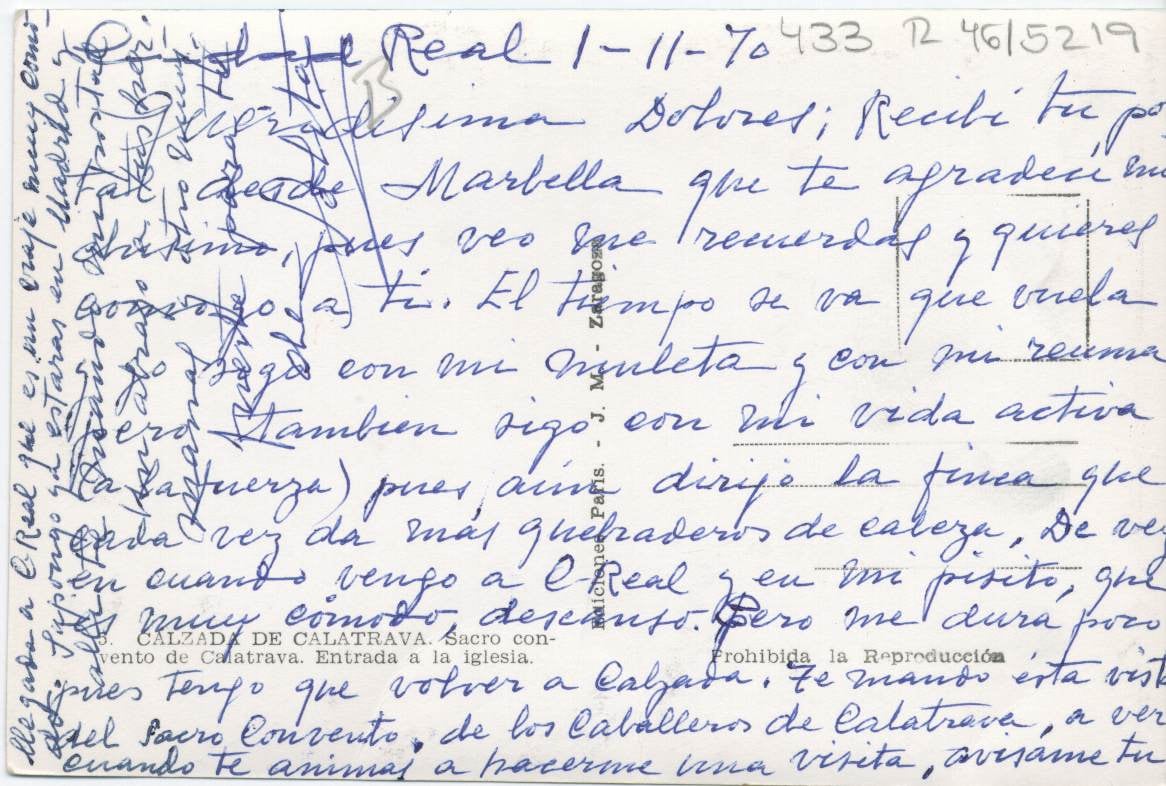 Ciudad Real 1-11-70
433 R 46/5219
B
Queridisima Dolores; Recibi tu pos
tal desde Marbella que te agradecí mu
chisimo, pues veo me recuerdas y quieres
como yo a ti. El tiempo se va que vuela
yo sigo con mi muleta y con mi reuma
pero tambien sigo con mi vida activa
(a la fuerza) pues aún dirijo la finca que
cada vez da más quebraderos de cabeza. De vez
en cuando vengo a C-Real y en mi pisito, que
es muy cómodo, descanso. Pero me dura poco
pues tengo que volver a Calzada. Te mando esta vista
del Sacro Convento, de los Caballeros de Calatrava, a ver
cuando te animas a hacerme una visita, avisame tu
llegada a C-Real que es un viaje muy cómo-
do. Supongo ya estarás en Madrid y
allí
para tu
5. CALZADA DE CALATRAVA. Sacro con-
vento de Calatrava. Entrada a la iglesia.
Ediciones París. - J. M. - Zaragoza
Prohibida la Reproducción